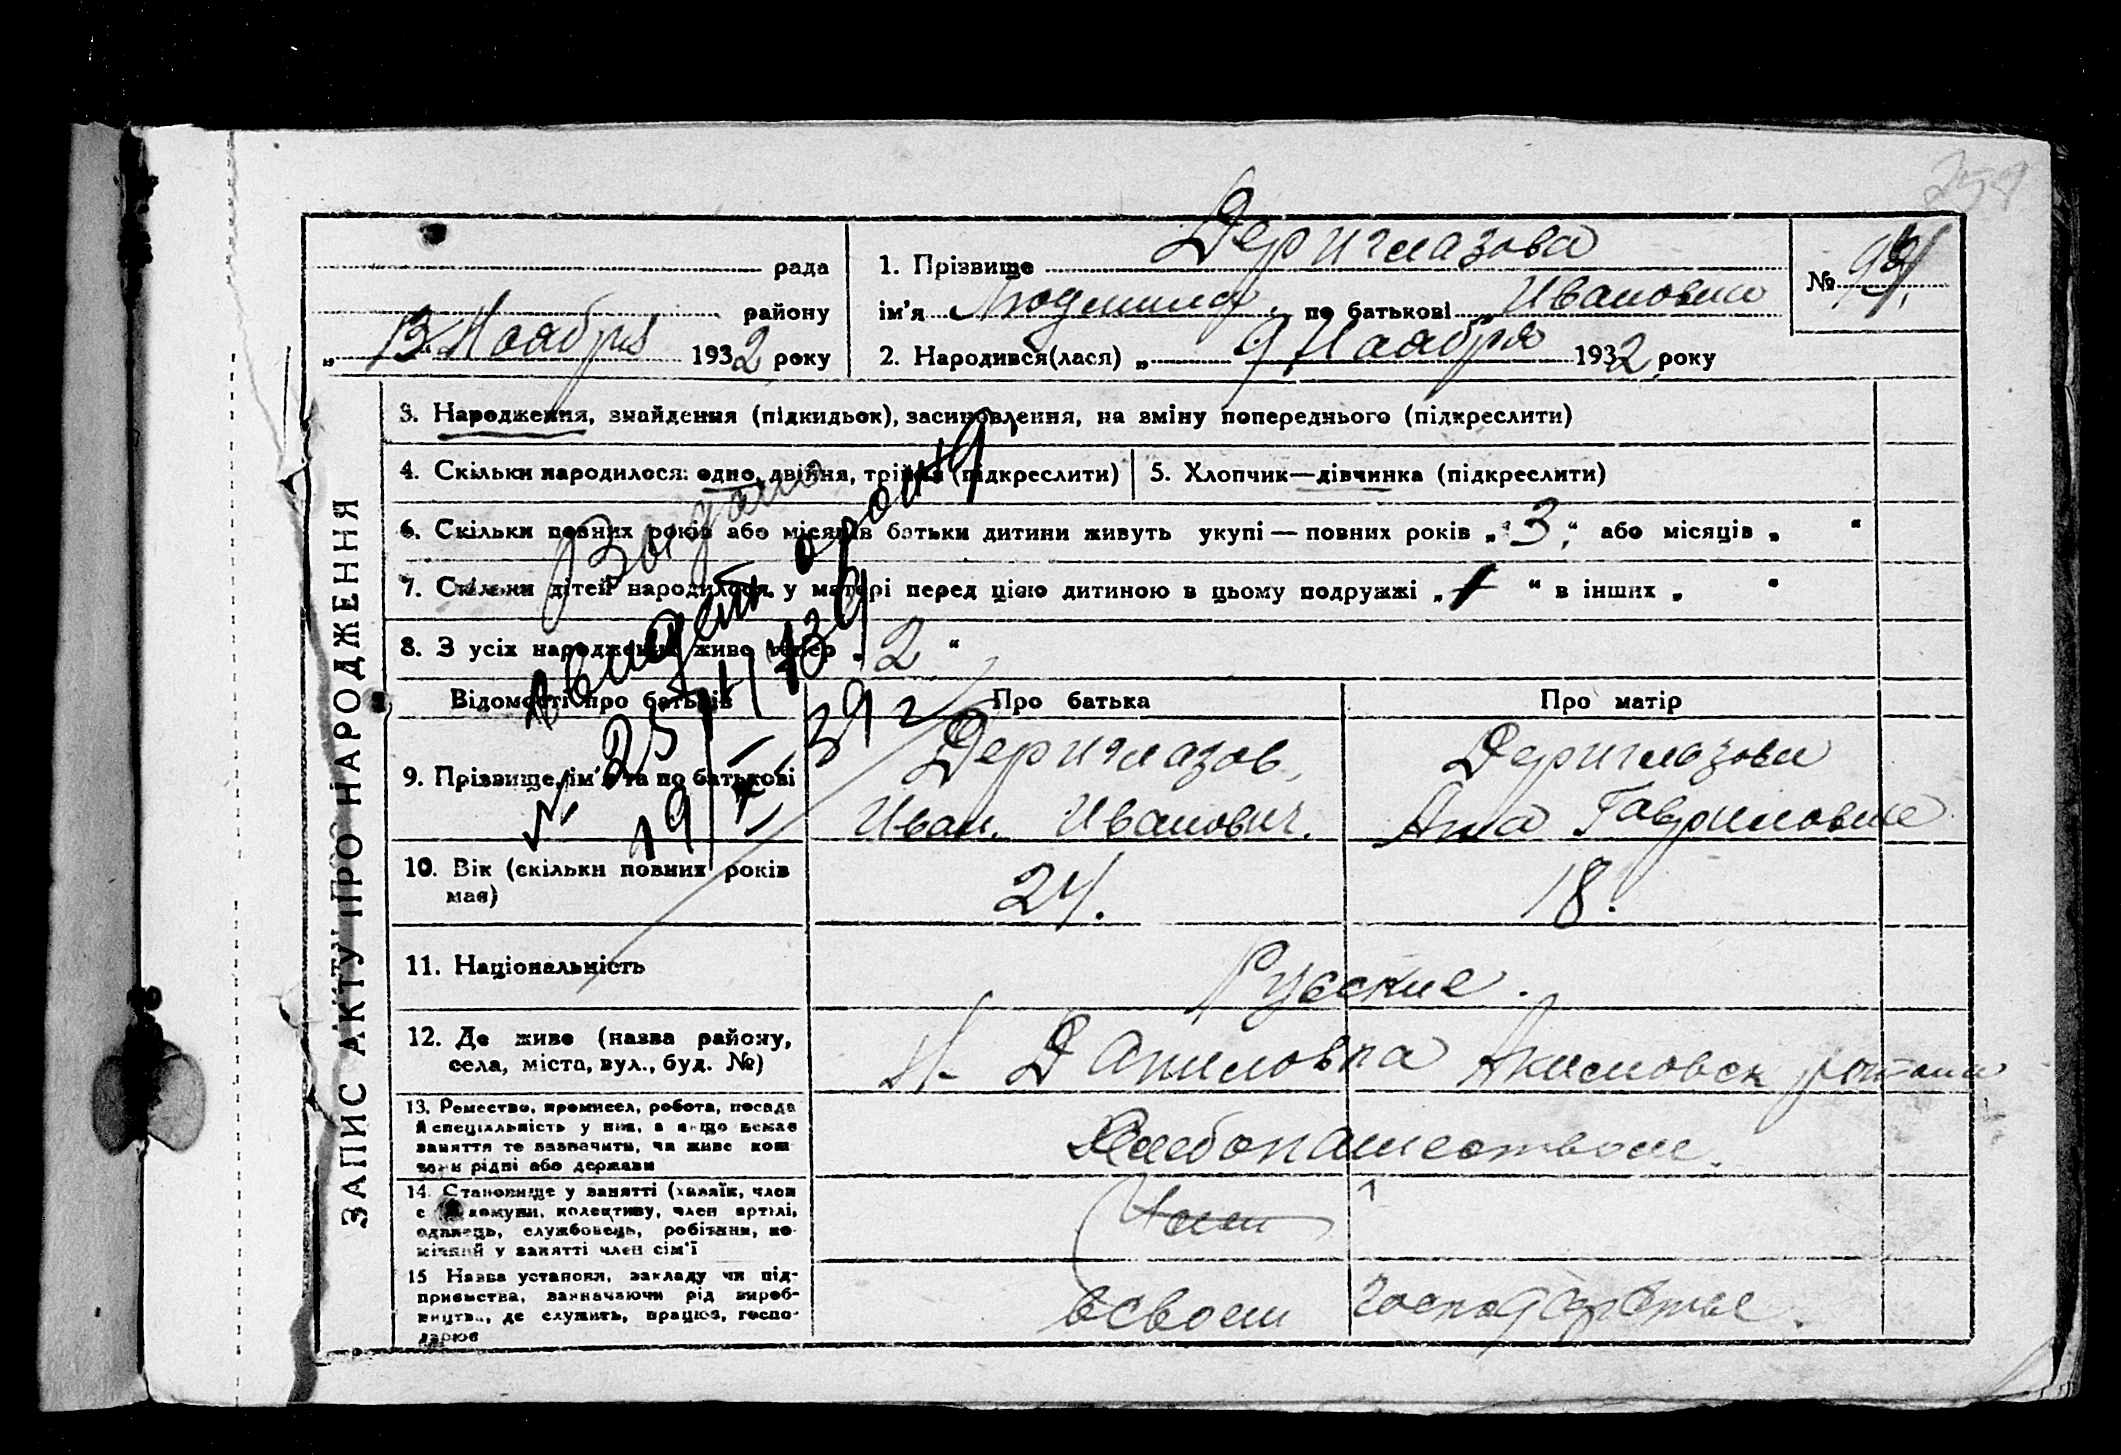 Дериглазова
рада
1. Прізвище
№ 94
району
ім'я Людмила по батькові Ивановна
„ 13 Ноября 1932 року
2. Народився(лася) „ 9 Ноября 1932 року
ЗАПИС АКТУ ПРО НАРОДЖЕННЯ
3. Народження, знайдення (підкидьок), засиновлення, на зміну попереднього (підкреслити)
4. Скільки народилося: одно, двійня, трійня (підкреслити)
5. Хлопчик—дівчинка (підкреслити)
6. Скільки повних років або місяців батьки дитини живуть укупі — повних років „ 3 “ або місяців „ “
7. Скільки дітей народилося у матері перед цією дитиною в цьому подружжі „ 1 “ в інших „ “
8. З усіх народжених живе тепер „ 2 “
Відомості про батьків
Про батька
Про матір
9. Прізвище, ім'я та по батькові
Дериглазов
Иван Иванович.
Дериглазова
Анна Гавриловна
10. Вік (скільки повних років має)
24.
18.
11. Національність
Русские.
12. Де живе (назва району, села, міста, вул., буд. №)
Даниловка Акимовск района
13. Ремество, промисел, робота, посада й спеціяльність у них, а якщо немає заняття то зазначити, чи живе коштом рідні або держави
Хлебопашеством.
14. Становище у занятті (хазяїн, член с г. комуни, колективу, член артілі, одинець, службовець, робітник, помічний у занятті член сім'ї
15 Назва установи, закладу чи підприємства, зазначаючи рід виробництва, де служить, працює, господарює
в своем господарстве.
Выдано
25
19
39 г